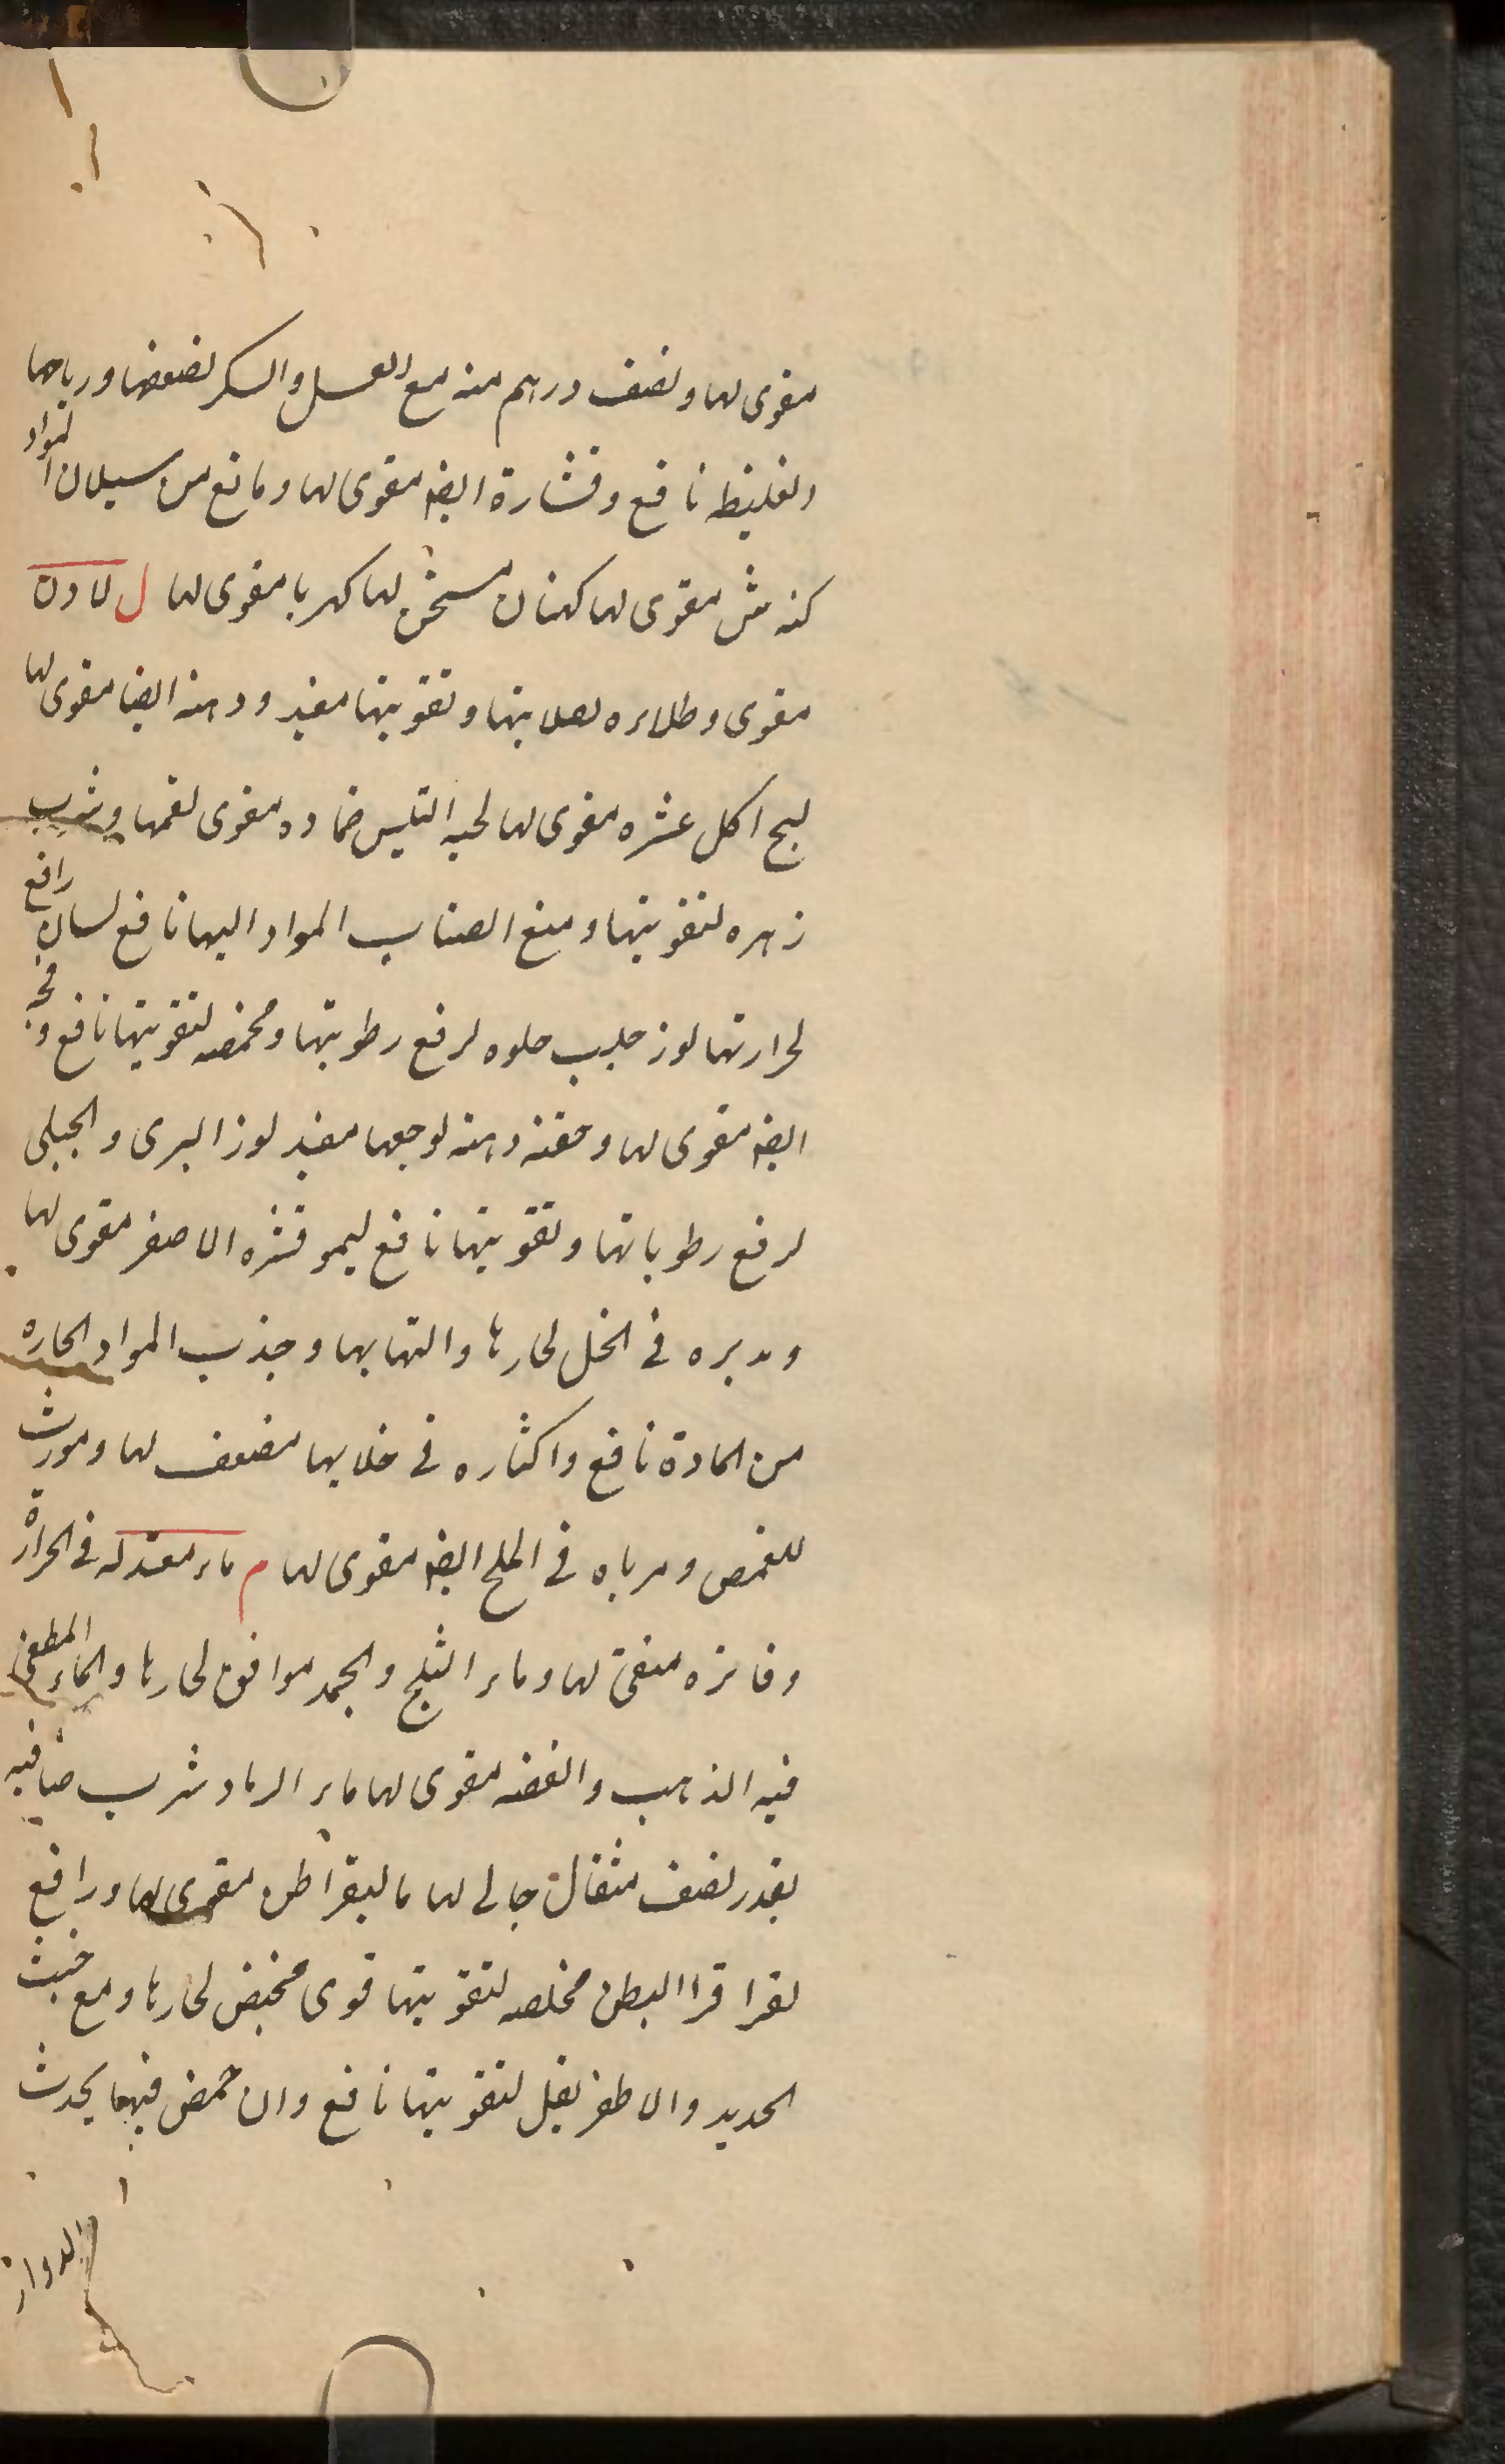 مقوی لها ونصف درهم منه مع العسل والسکر لضعفها وریاحها
الغلیظه نافع وقشارة ایضه مقوی لها ومانع من سیلان المواد
کنه ش مقوی لها کتان مسخن لها کهربا مقوی لها ل لادن
مقوی وطلاءه لصلابتها وتقویتها مفید ودهنه ایضا مقوی لها
لبج اکل عشره مقوی لها لحیه التیس ضماده مقوی لفمها وشرب
زهره لتقویتها ومنع انصباب المواد الیها نافع لسان رافع
لحرارتها لوز حلیب حلوه لرفع رطوبتها ومحمضه لتقویتها نافع و
ایضه مقوی لها وحقنه دهنه لوجعها مفید لوز البری والجبلی
لرفع رطوباتها وتقویتها نافع لیمو قشره الاصفر مقوی لها
ومدبره فی الخل لحارها والتهابها وجذب المواد الحاره
من المادة نافع واکثاره فی خلائها مضعف لها ومورث
للغمص ومرباه فی الملح ایضه مقوی لها م ماء معتدله فی الحرارة
وفاتره منقی لها وماء الثلج والجمد موافق لحارها والماء المطفی
فیه الذهب والفضه مقوی لها ماء الرماد شرب صافیه
بقدر نصف مثقال جالی لها مالیقراطن مقوی لها ورافع
لقراقرا البطن مخلصه لتقویتها قوی مخیض لحارها ومع خبث
الحدید والاطریفل لتقویتها نافع وان حمض فیها یحدث
الدوار